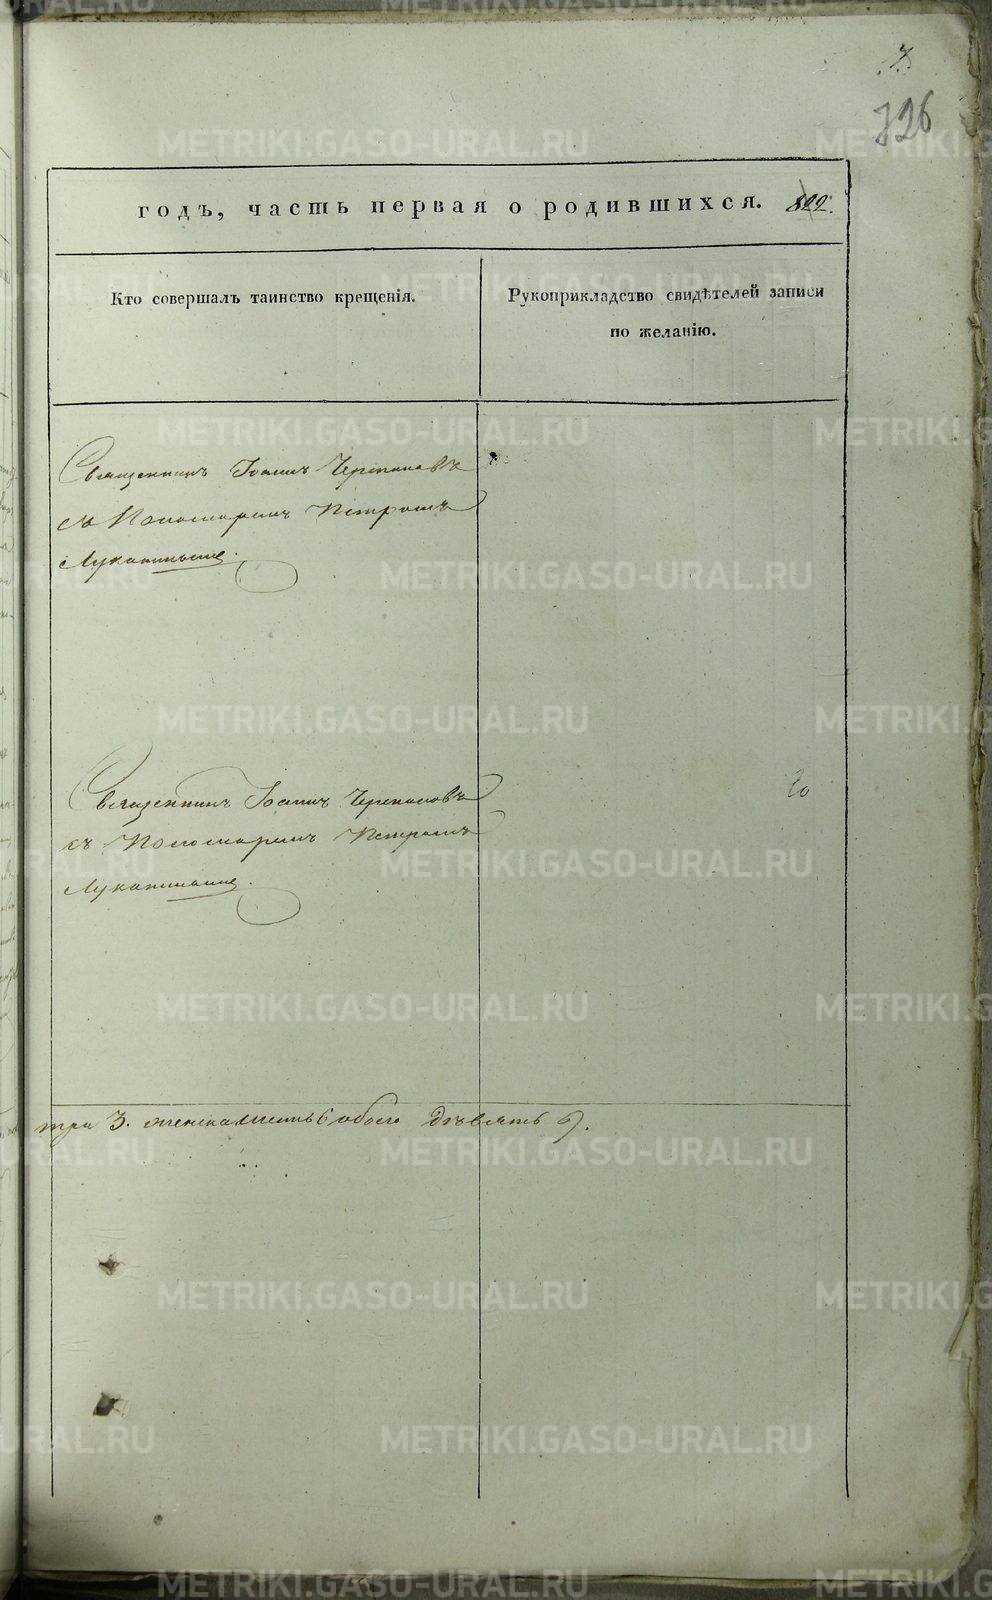 7.
726
годъ, часть первая о родившихся. 822.
Кто совершалъ таинство крещенія.
Рукоприкладство свидѣтелей записи
по желанію.
Священникъ Іоаннъ Черепановъ
съ Пономаремъ Петромъ
Лукинымъ.
Священникъ Іоаннъ Черепановъ
съ Пономаремъ Петромъ
три 3. женска шесть 6 обоего девять 9.
METRIKI.GASO-URAL.RU